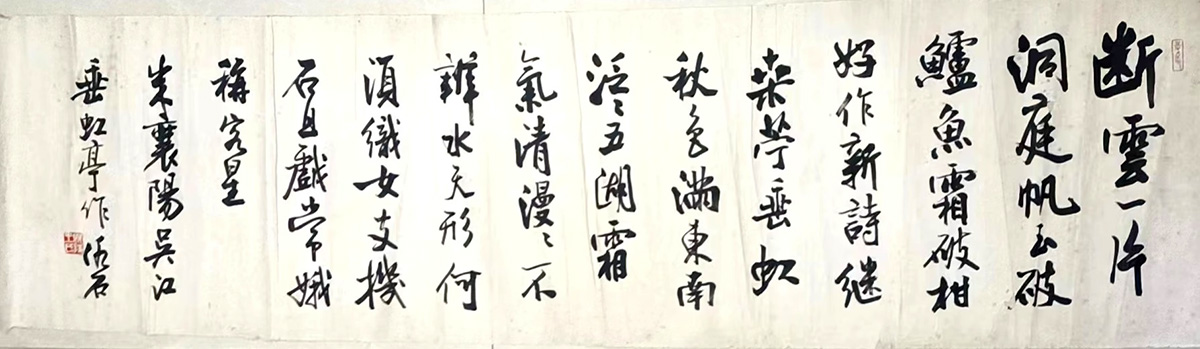 断雲一片
洞庭帆玉破
鱸魚霜破柑
好作新詩継
桒苧垂虹
秋色滿東南
泛〻五湖霜
氣清漫〻不
辨水天形何
須織女支機
石且戲常娥
稱客星
米襄陽吳江
垂虹亭作